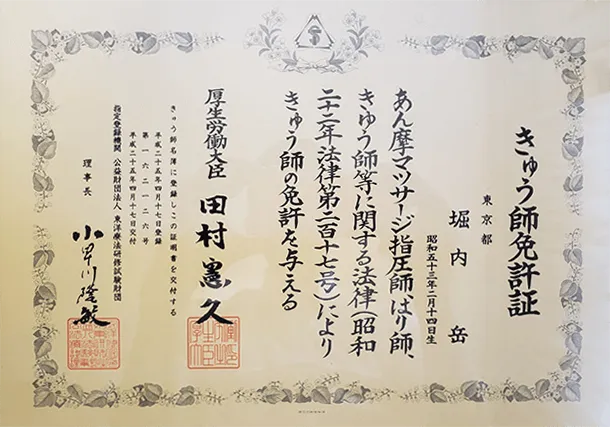 きゅう師免許証
東京都
堀内 岳
昭和五十三年二月十四日生
あん摩マツサージ指圧師、はり師、
きゆう師等に関する法律(昭和
二十二年法律第二百十七号)により
きゅう師の免許を与える
厚生労働大臣 田村憲久
きゅう師名簿に登録しこの証明書を交付する
平成二十五年四月十七日登録
第一六二一二六号
平成二十五年四月十七日交付
指定登録機関 公益財団法人 東洋療法研修試験財団
理事長 小早川隆敏